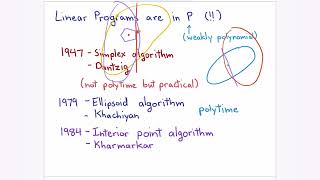 Linear Programs are in P (!!)
(weakly polynomial)
1947 - Simplex algorithm
- Dantzig
(not polytime but practical)
1979 - Ellipsoid algorithm
- Khachiyan
polytime
1984 - Interior point algorithm
- Kharmarkar